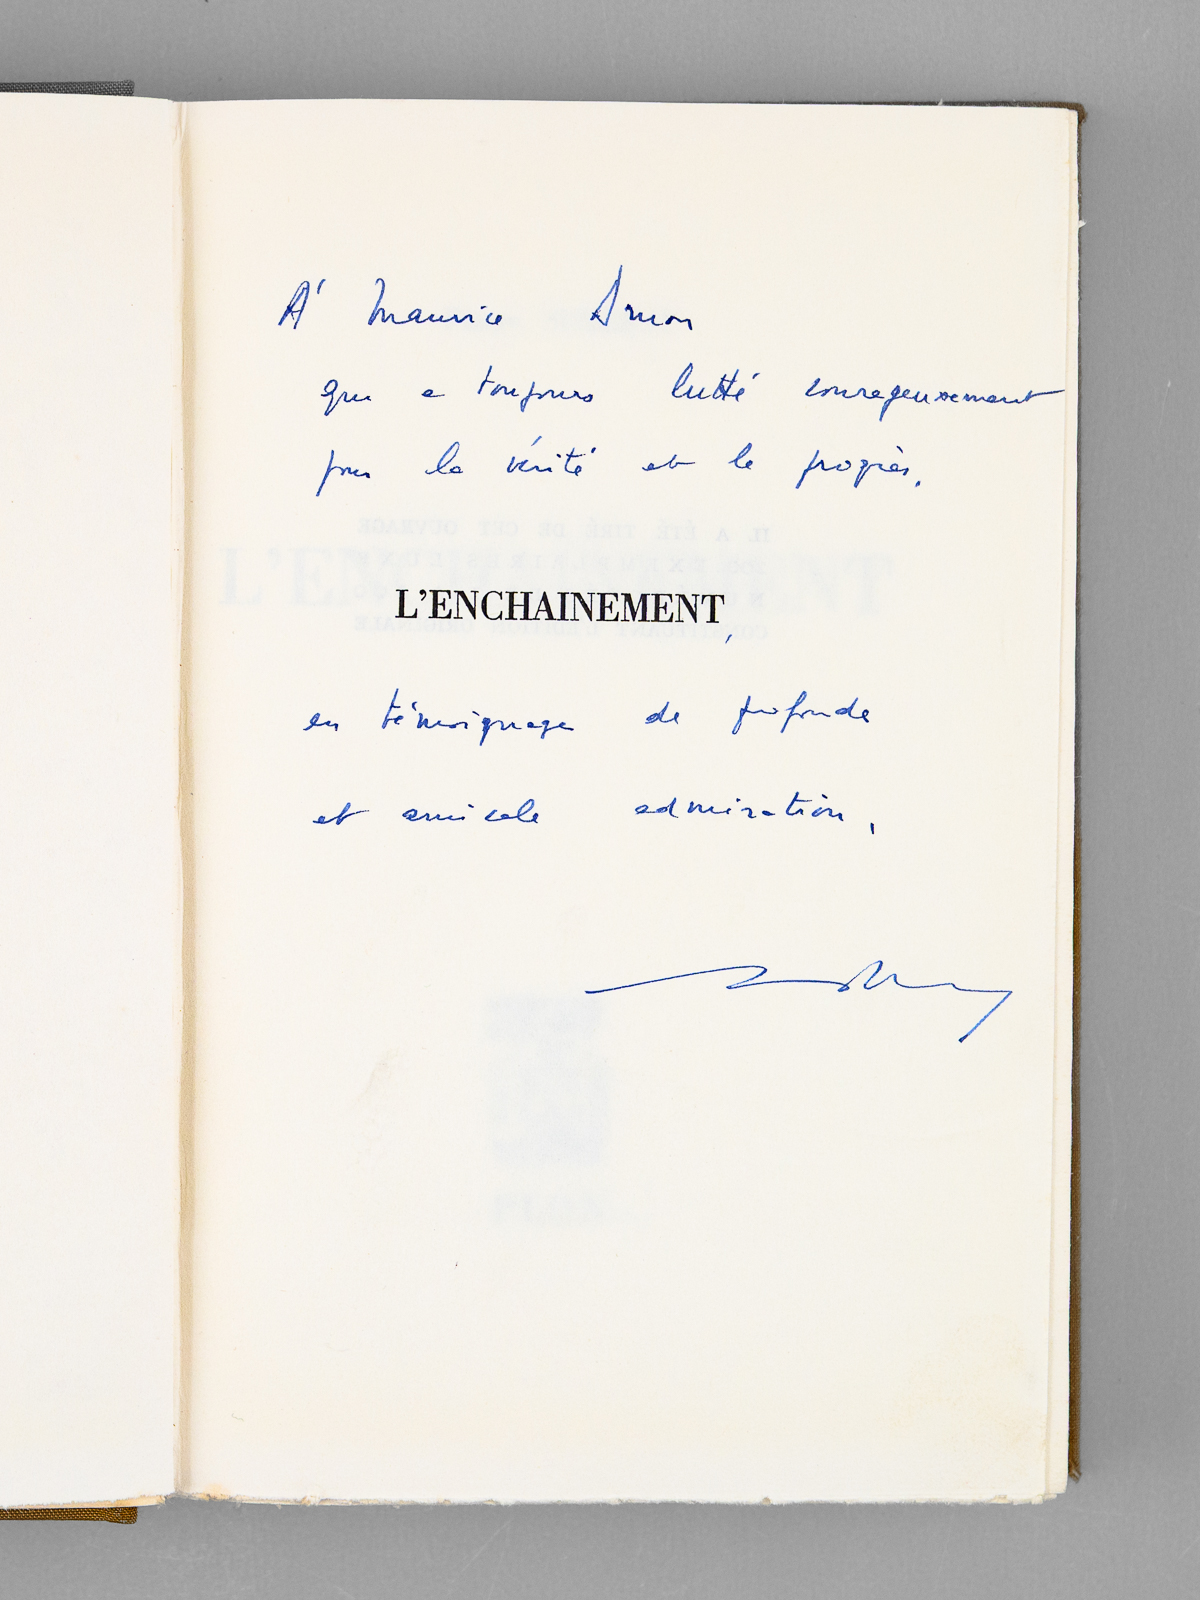 À Maurice Simon
qui a toujours lutté courageusement
pour la vérité et le progrès,
L'ENCHAINEMENT,
en témoignage de profonde
et amicale admiration,